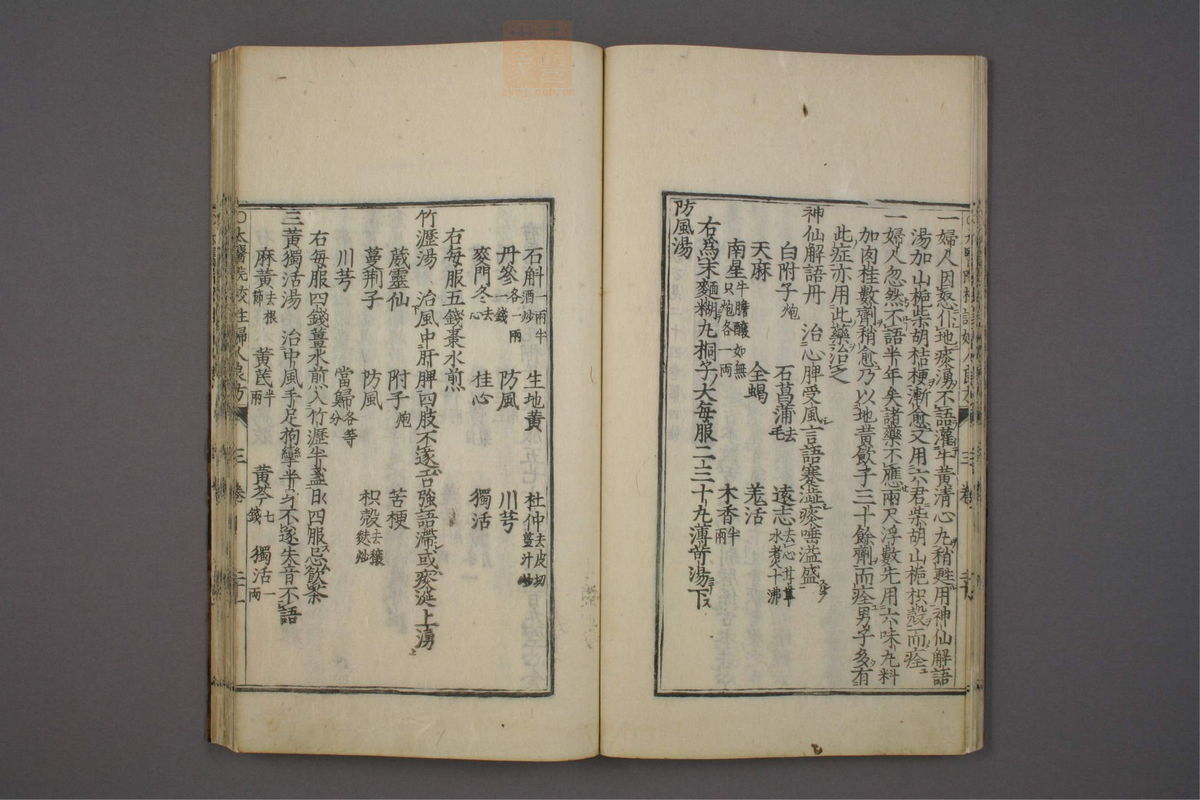 一婦人因怒仆地痰湧不語灌牛黃清心丸稍甦用神仙解語
湯加山梔柴胡桔梗漸愈又用六君柴胡山梔枳殻而痊
一婦人忽然不語半年矣諸藥不應兩尺浮數先用六味丸料
加肉桂數劑稍愈乃以地黃飮子三十餘劑而痊男子多有
此症亦用此藥治之
神仙解語丹 治心脾受風言語蹇澁痰唾溢盛
白附子炮 石菖蒲去毛 遠志去心甘草水煮十沸
天麻 全蝎 羌活
南星牛膽釀如無只炮各一兩 木香半兩
右爲末麥糊丸桐子大每服二三十丸薄荷湯下
防風湯
石斛一兩半酒炒 生地黃 杜仲去皮切薑汁炒
丹參各一兩一錢 防風 川芎
麥門冬去心 桂心 獨活
右每服五錢棗水煎
竹瀝湯 治風中肝脾四肢不遂舌強語滯或痰涎上湧
葳靈仙 附子炮 苦梗
蔓荆子 防風 枳殻去穰麩炒
川芎 當歸各等分
右每服四錢薑水煎入竹瀝半盞日四服忌飮茶
三黃獨活湯 治中風手足拘攣半身不遂失音不語
麻黃去根節 黃芪半兩 黃芩七錢 獨活一兩
○太醫院校註婦人良方 三卷